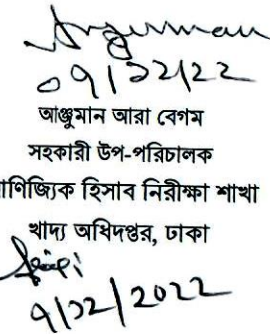 Anjuman
০৭/১২/২২
আঞ্জুমান আরা বেগম
সহকারী উপ-পরিচালক
াণিজ্যিক হিসাব নিরীক্ষা শাখা
খাদ্য অধিদপ্তর, ঢাকা
৭/১২/২০২২